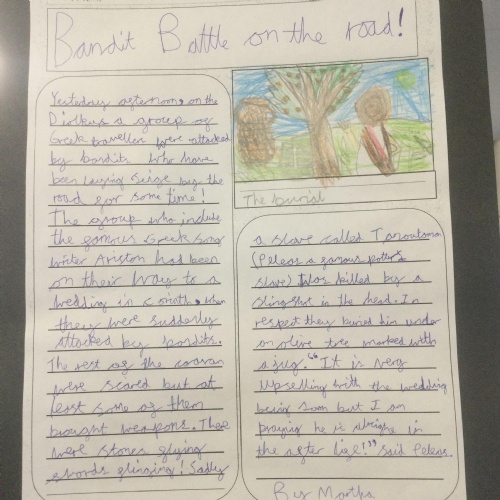 Bandit Battle on the road!
Yesterday afternoon, on the
Diolkus a group of
Greek travellers were attacked
by bandits who have
been laying seige by the
road for some time!
The group who include
the famous Greek song
writer Ariston had been
on their way to a
wedding in corinth, when
they were suddenly
attacked by bandits.
The rest of the caravan
were scared but at
least some of them
brought weapons. There
were stones flying
swords clinging! Sadly
The burial
a slave called
(Peleus a famous potter's
slave) was killed by a
slingshot in the head. In
respect they buried him under
an olive tree marked with
a jug. "It is very
upsetting with the wedding
being soon but I am
praying he is alright in
the after life!" said Peleus.
By Martha